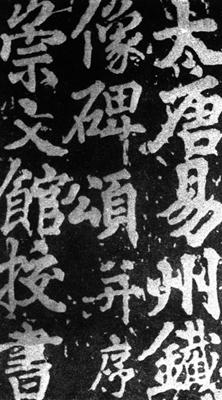 大唐易州鐵
像碑頌并序
崇文館校書